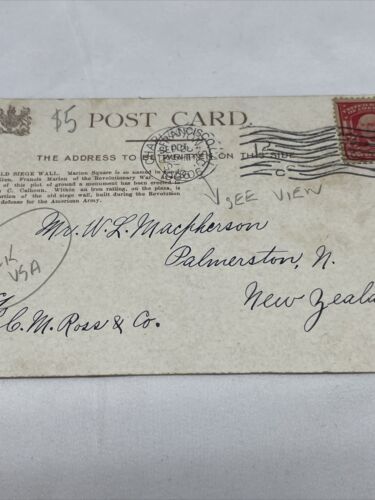 $5 POST CARD.
THE ADDRESS TO BE WRITTEN ON THIS SIDE
LD SIEGE WALL. Marion Square is so named in
Francis Marion of the Revolutionary War.
of this plot of ground a monument has been erected
C. Calhoun. Within an iron railing, on the plaza, is
ortion of the old siege wall, built during the Revolution
defense for the American Army.
SAN FRANCISCO
SEE VIEW
USA
Mr. W. L. Macpherson
Palmerston, N.
New Zeala
C. M. Ross & Co.